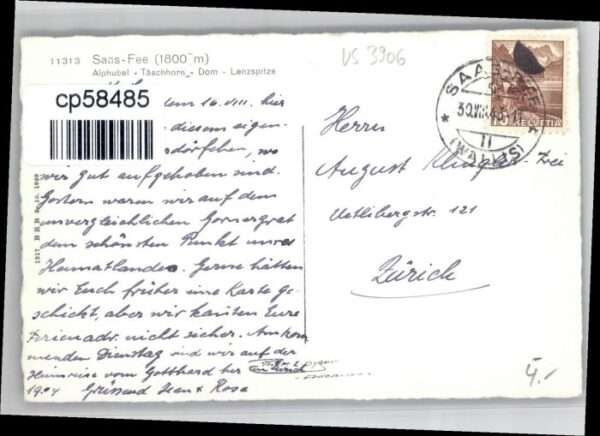 11313 Saas-Fee (1800 m)
Alphubel - Täschhorn - Dom - Lenzspitze
VS 3906
cp58485
dem 16. VIII. hier
diesem eigen-
dörfchen, wo
wir gut aufgehoben sind.
Gestern waren wir auf dem
unvergleichlichen Gornergrat
dem schönsten Punkt
Heimatlandes. Gerne hätten
wir Euch früher eine Karte ge-
schickt, aber wir kannten Eure
Ferienadr. nicht sicher. Am kom
menden Dienstag sind wir auf der
Heimreise vom Gotthard her
in Zürich
Grüssend Jean & Rosa
Herrn
August
Uetlibergstr. 121
Zürich
SAAS-FEE
(WALLIS)
HELVETIA
4.-